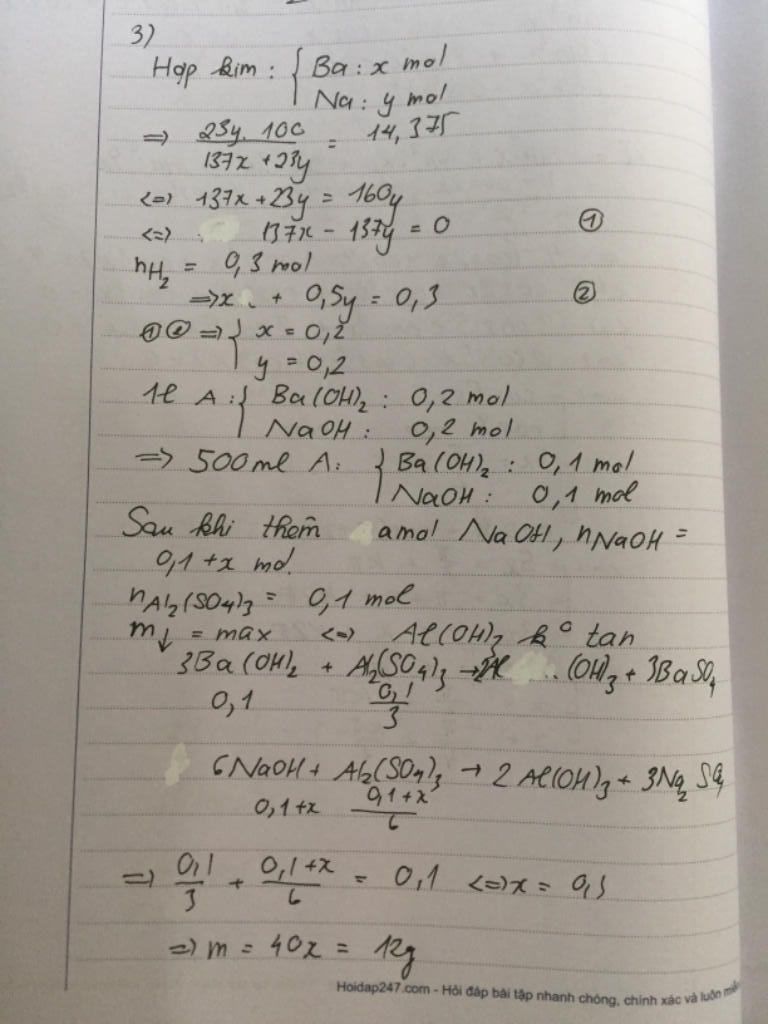 3)
Hợp kim : { Ba : x mol
Na : y mol
=> 23y. 100 / 137x + 23y = 14,375
<=> 137x + 23y = 160y
<=> 137x - 137y = 0 ①
nH₂ = 0,3 mol
=> x + 0,5y = 0,3 ②
① ② => { x = 0,2
y = 0,2
1l A : { Ba(OH)₂ : 0,2 mol
NaOH : 0,2 mol
=> 500ml A : { Ba(OH)₂ : 0,1 mol
NaOH : 0,1 mol
Sau khi thêm a mol NaOH, nNaOH =
0,1 + x mol.
nAl₂(SO₄)₃ = 0,1 mol
m↓ = max <=> Al(OH)₃ k° tan
3Ba(OH)₂ + Al₂(SO₄)₃ → (OH)₃ + 3BaSO₄
0,1 0,1/3
6NaOH + Al₂(SO₄)₃ → 2Al(OH)₃ + 3Na₂SO₄
0,1+x 0,1+x/6
=> 0,1/3 + 0,1+x/6 = 0,1 <=> x = 0,3
=> m = 40x = 12g
Hoidap247.com - Hỏi đáp bài tập nhanh chóng, chính xác và luôn